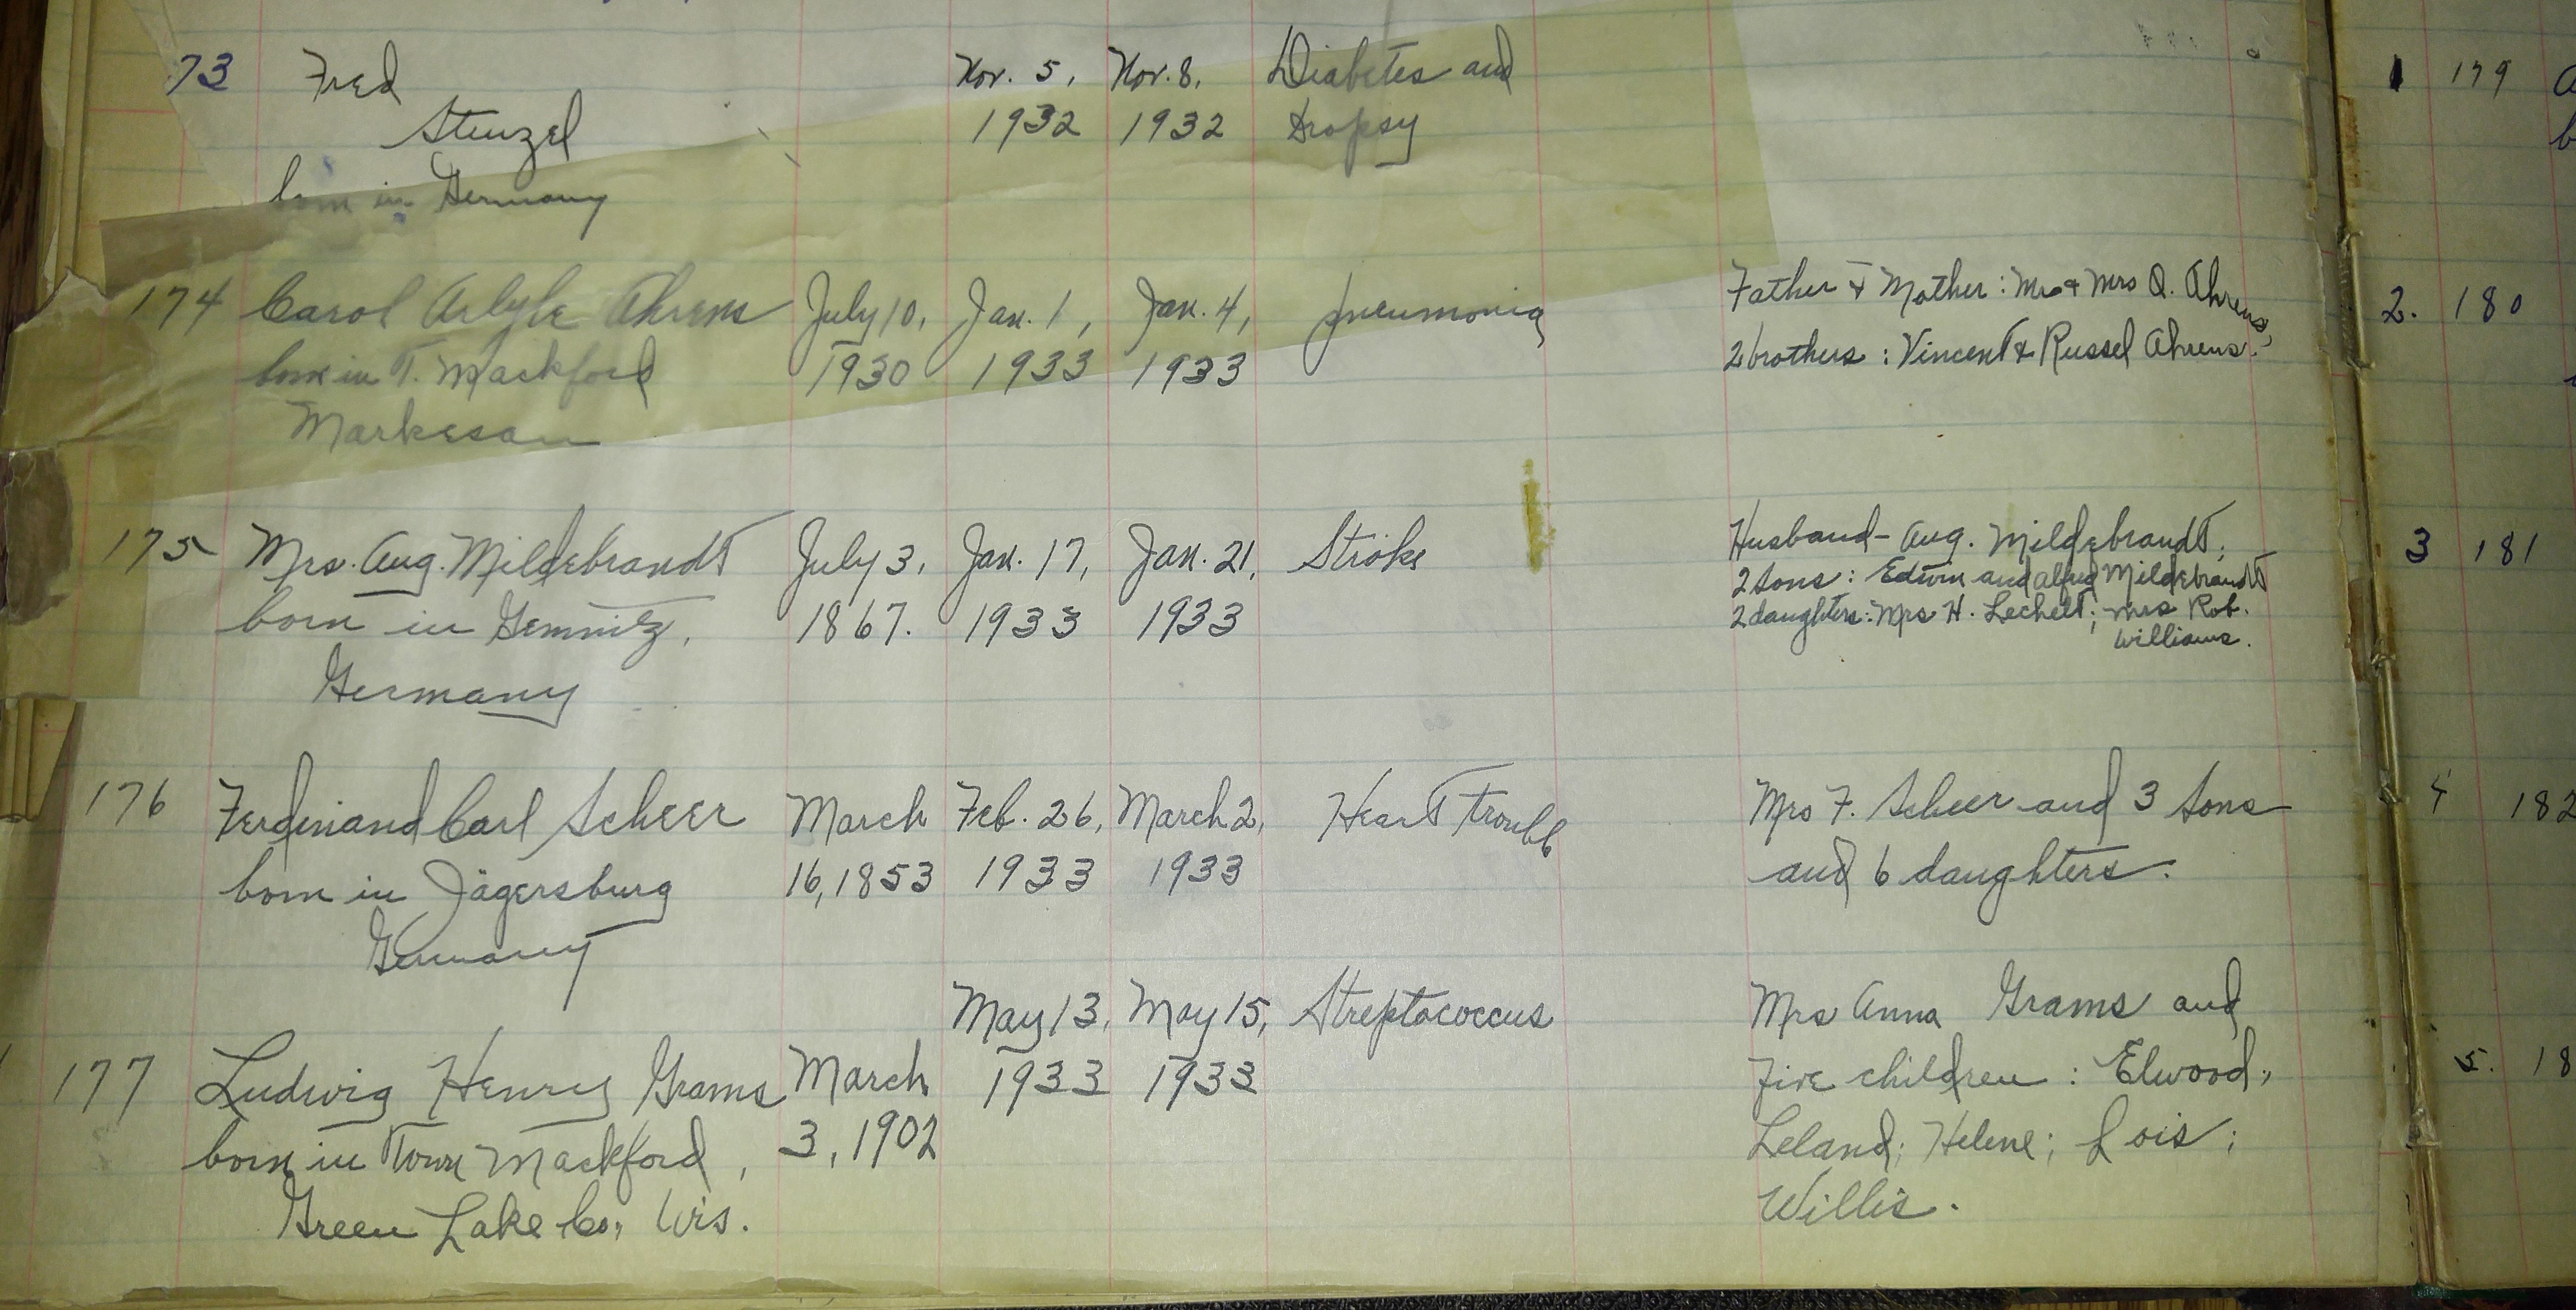 73 Fred Nov. 5, Nov. 8, Diabetes and
Stenzel 1932 1932 Dropsy
born in Germany
174 Carol Arlyle Ahrens July 10, Jan. 1, Jan. 4, pneumonia Father & Mother: Mr & Mrs O. Ahrens,
born in T. Mackford 1930 1933 1933 2 brothers: Vincent & Russel Ahrens.
Markesan
175 Mrs. Aug. Mildebrandt July 3, Jan. 17, Jan. 21, Stroke Husband - Aug. Mildebrandt;
2 sons: Edwin and Alfred Mildebrandt
born in Gemnitz, 1867. 1933 1933 2 daughters: Mrs H. Lechelt; Mrs Rob.
Williams.
Germany
176 Ferdinand Carl Scheer March Feb. 26, March 2, Heart trouble Mrs F. Scheer and 3 sons
born in Jägersburg 16, 1853 1933 1933 and 6 daughters.
Germany
May 13, May 15, Streptococcus Mrs Anna Grams and
177 Ludwig Henry Grams March 1933 1933 five children: Elwood;
born in Town Mackford, 3, 1902 Leland; Helene; Lois;
Green Lake Co., Wis. Willis.
1 179
2. 180
3 181
4 182
5. 18